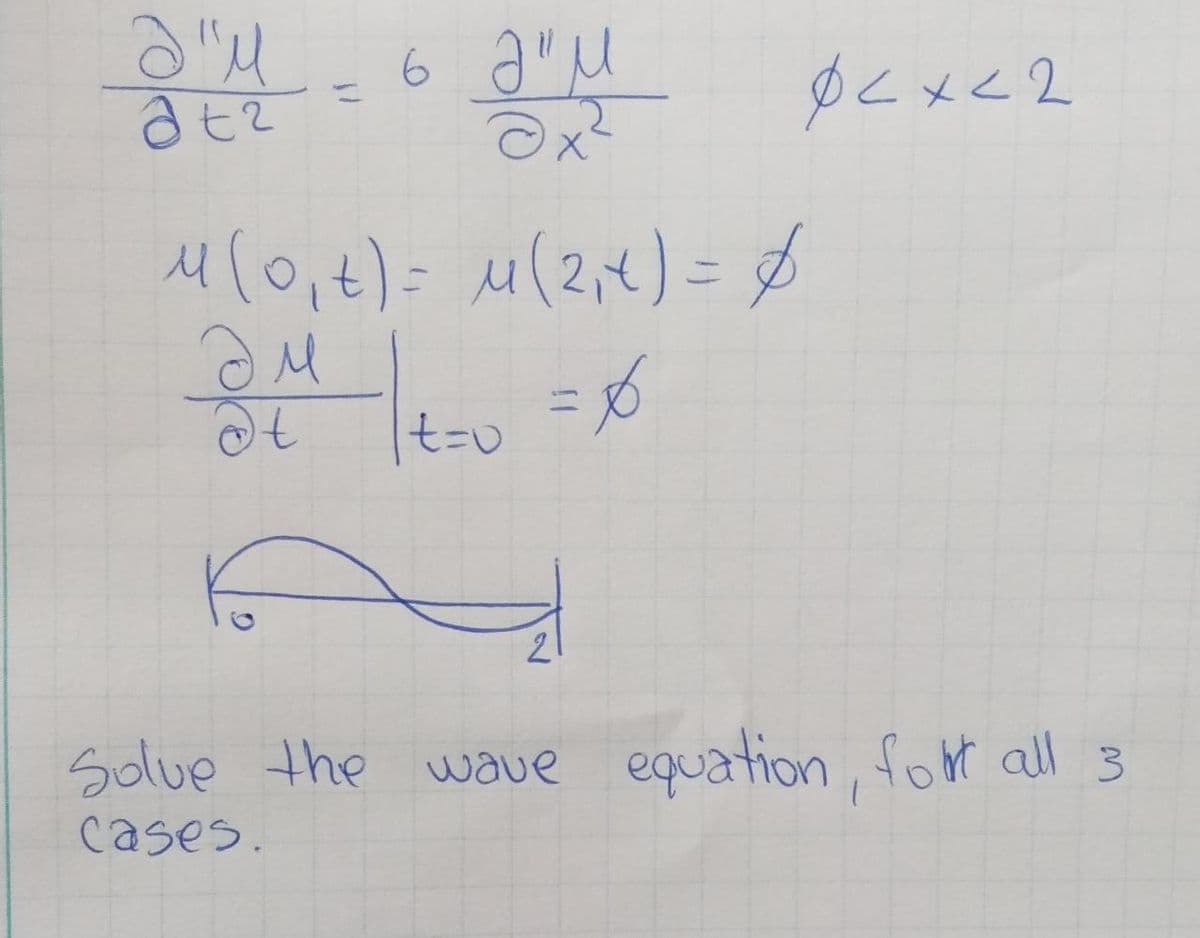 ∂"u/∂t2 = 6 ∂"u/∂x2 0<x<2
u(0,t)= u(2,t) = 0
∂u/∂t |t=0 = 0
0 2
Solve the wave equation, for all 3
cases.